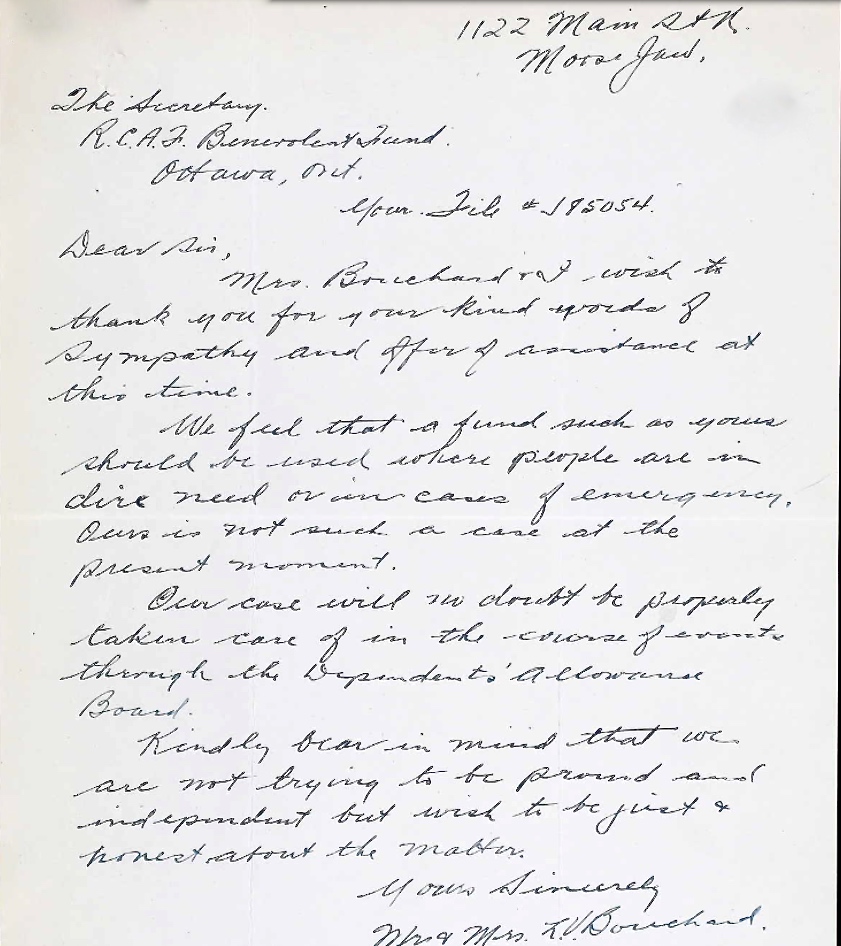 1122 Main St. N.
Moose Jaw.
The Secretary.
R.C.A.F. Benevolent Fund.
Ottawa, Ont.
Your File # J95054.
Dear Sir,
Mrs. Bouchard & I wish to
thank you for your kind words of
sympathy and offer of assistance at
this time.
We feel that a fund such as yours
should be used where people are in
dire need or in cases of emergency.
Ours is not such a case at the
present moment.
Our case will no doubt be properly
taken care of in the course of events
through the Dependents' Allowance
Board.
Kindly bear in mind that we
are not trying to be proud and
independent but wish to be just &
honest about the matter.
Yours Sincerely
Mr & Mrs. L.V. Bouchard.